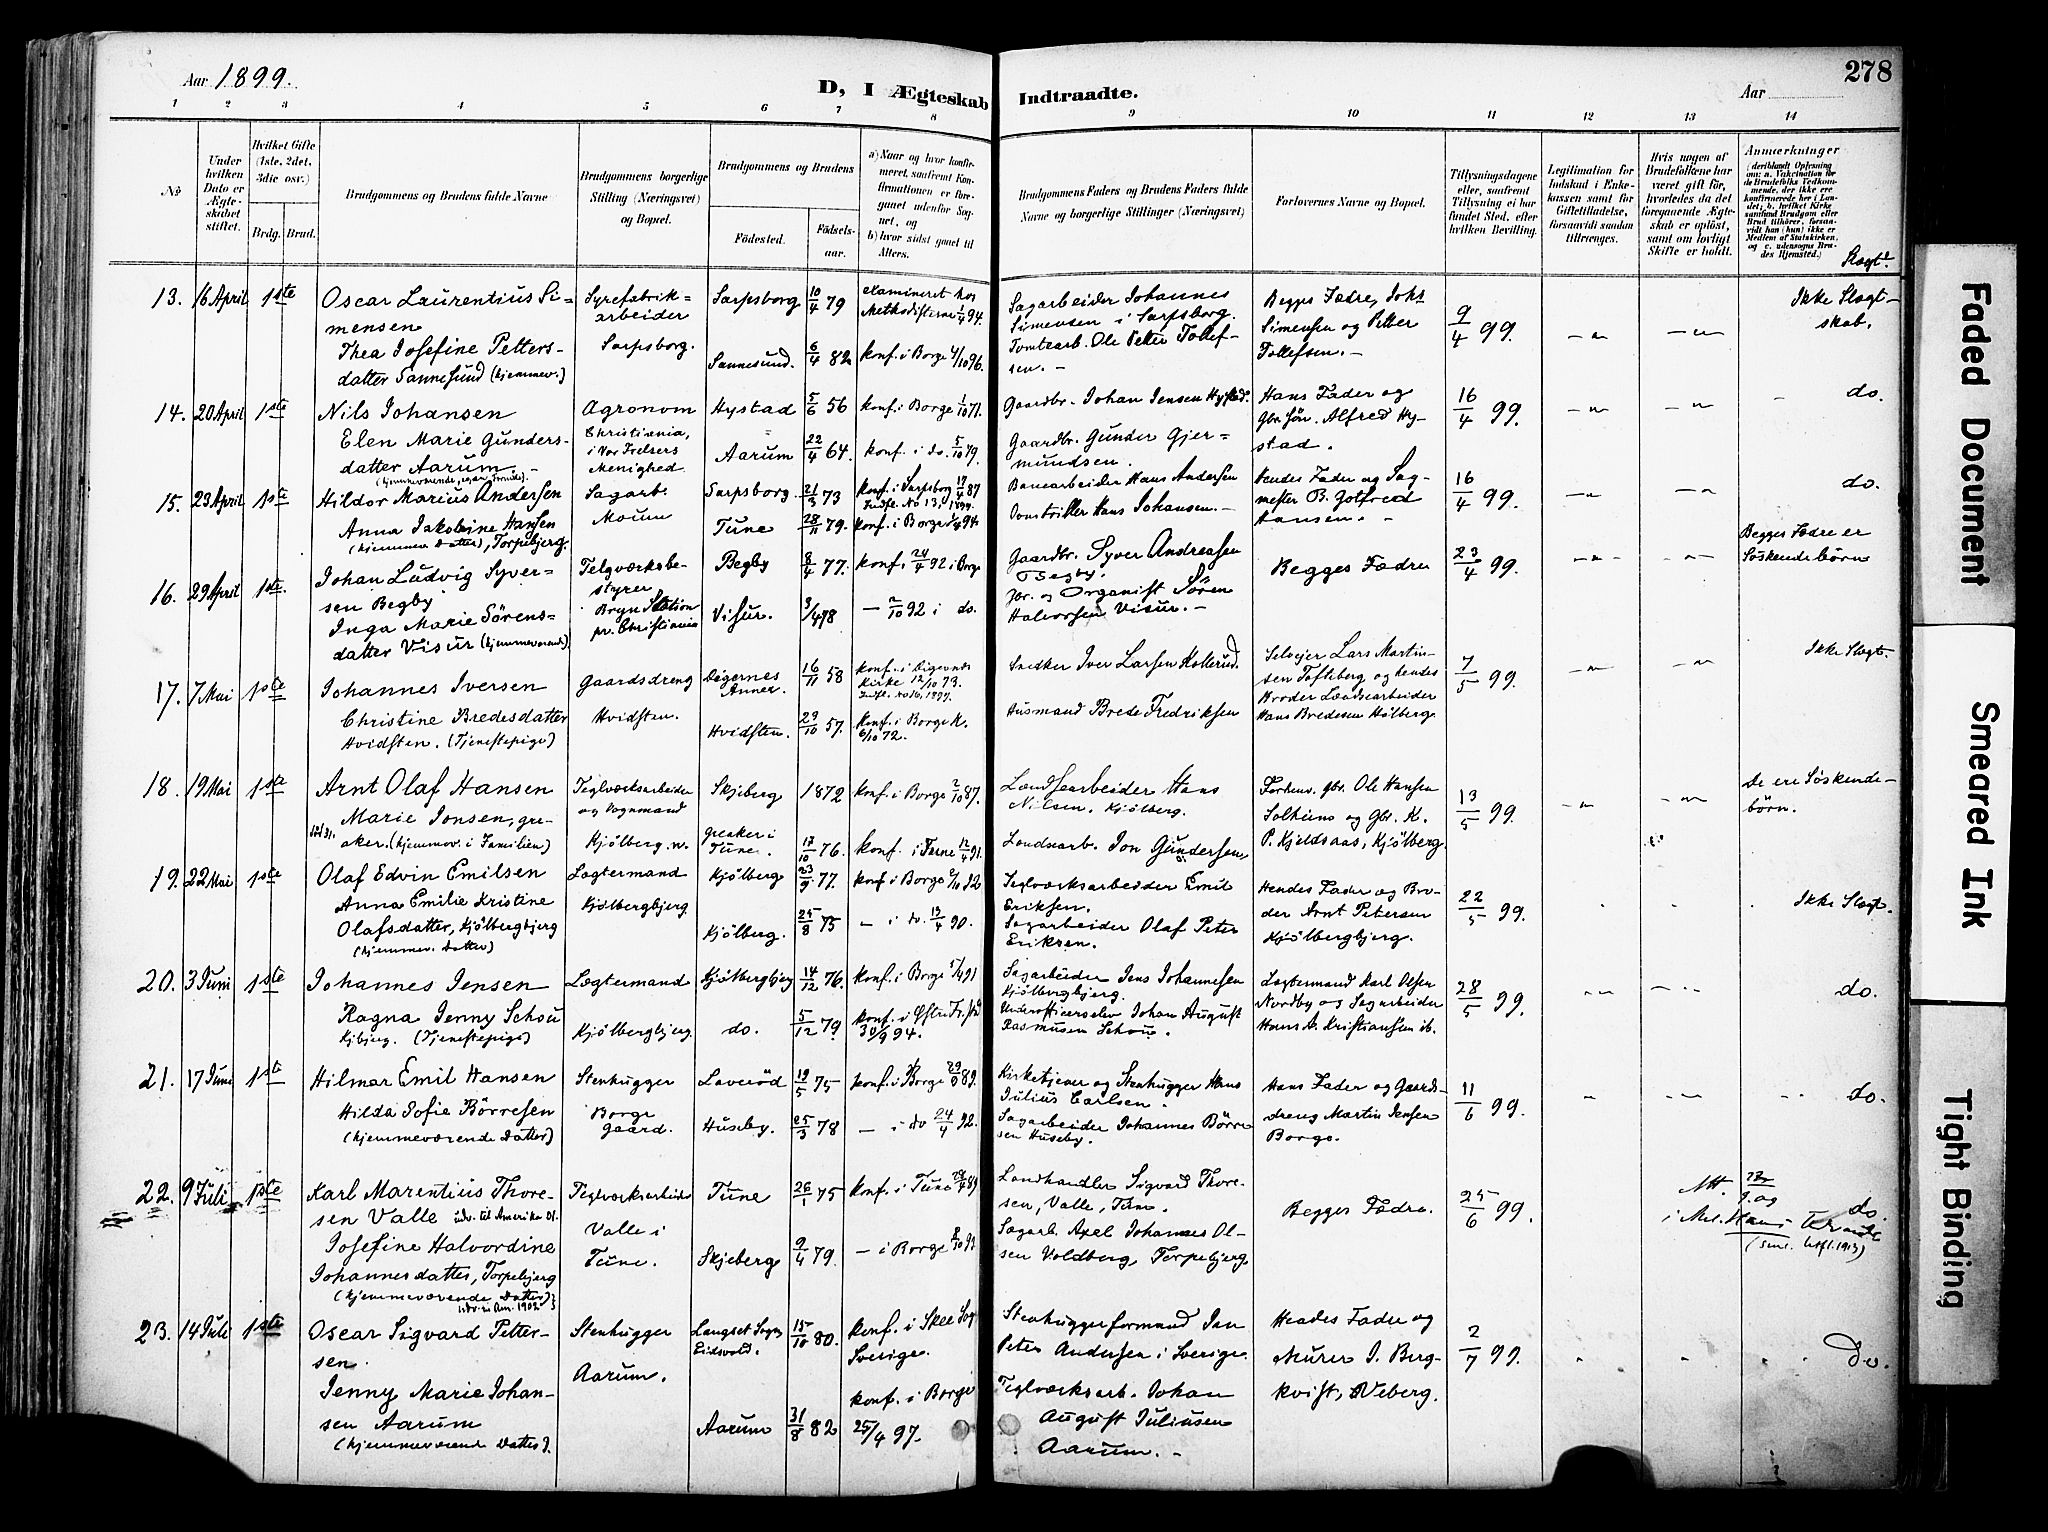 Aar 1899.
D, I Ægteskab Indtraadte.
Aar
278
1 2 3 4 5 6 7 8 9 10 11 12 13 14
No
Under hvilken Dato er Ægteskabet stiftet.
Hvilket Gifte (1ste, 2det, 3die osv.)
Brdg. Brud.
Brudgommens og Brudens fulde Navne
Brudgommens borgerlige Stilling (Næringsvei) og Bopæl.
Brudgommens og Brudens
Fødested.
Fødselsaar.
a) Naar og hvor konfirmeret, samt om Konfirmationen er foregaaet udenfor Sognet, og
b) hvor sidst gaaet til Alters.
Brudgommens Faders og Brudens Faders fulde Navne og borgerlige Stillinger (Næringsvei)
Forlovernes Navne og Bopæl.
Tillysningsdagene eller, saafremt Tillysning ei har fundet Sted, efter hvilken Bevilling.
Legitimation for Indskud i Enkekassen samt for Giftetilladelse, forsaavidt saadan tiltrænges.
Hvis nogen af Brudefolkene har været gift før, hvorledes da det foregaaende Ægteskab er opløst, samt om lovligt Skifte er holdt.
Anmærkninger
Slægt.
13. 16 April 1ste Oscar Laurentius Simensen
Syrefabrikarbeider Sarpsborg. Sarpsborg 10/4 79 examineret hos Methodisterne 1/4 94.
Sagarbeider Johannes Simensen i Sarpsborg.
Begges Fædre, Johs Simensen og Petter Tollefsen. 9/4 99. Ikke Slægtskab.
Thea Josefine Pettersdatter Sannesund (hjemmev.) Sannesund. 6/4 82 konf. i Borge 4/10 96.
Tomtearb. Ole Petter Tollefsen.
14. 20 April 1ste Nils Johansen Agronom Christiania, i Vor Frelsers Menighed. Hystad 5/6 56 konf. i Borge 1/10 71.
Gaardbr. Johan Jensen Hystad. Hans Fader og Gbr. søn. Alfred Hystad. 16/4 99. do.
Elen Marie Gundersdatter Aarum. Aarum 22/4 64. konf. i do. 5/10 79.
Gaardbr. Gunder Gjermundsen.
15. 23 April 1ste Hildor Marius Andersen Sagarb. Moum Sarpsborg. 21/3 73 konf. i Sarpsborg 17/4 87
Banearbeider Hans Andersen Hendes Fader og Sagmester B. Gotfred Hansen. 16/4 99. do.
Anna Jakobine Hansen (hjemmev. Datter), Torpebjerg. Tune 28/11 79. konf. i Borge
Hans Johansen.
16. 29 April 1ste. Johan Ludvig Syversen Begby Teglværksbestyrer Bryn Station pr. Christiania Begby 8/4 77. konf. 24/4 92 i Borge
Gaardbr. Syver Andreasen Begby. Begges Fædre 23/4 99. Begges Fædre er Søskendebørn
Inga Marie Sørensdatter Visur (hjemmeværende) Visur. 3/4 78 — 2/10 92 i do.
Gbr. og Organist Sören Halvorsen Visur.
17. 7 Mai 1ste Johannes Iversen Gaardsdreng Hvidsten. Digernes Annex. 16/11 58 konf. i Digernes Kirke 12/10 73.
Snedker Iver Larsen Kollerud. Selveier Lars Martinsen Tofteberg og hendes Broder Landsearbeider Hans Bredesen Hølberg. 7/5 99. Ikke Slægt.
Christine Bredesdatter Hvidsten. (Tjenestepige) Hvidsten. 29/10 57. konf. i Borge K. 6/10 72.
Husmand Brede Fredriksen
18. 19 Mai 1ste Arnt Olaf Hansen Teglværksarbeider og Vognmand Kjølberg. Skjeberg 1872 konf. i Borge 2/10 87.
Landsearbeider Hans Nilsen. Kjølberg. Forhenv. gbr. Ole Hansen Solhims og Gbr. K. P. Kjeldsaas, Kjølberg. 13/5 99. De ere Søskendebørn.
Marie Jonsen, greaker. (hjemmev. i Familien) Greaker i Tune. 17/10 76. konf. i Tune 12/4 91.
Landsearb. Jon Gundersen
19. 22 Mai 1ste Olaf Edvin Emilsen Lægtermand Kjølbergbjerg Kjølberg 23/9 77. konf i Borge 2/10 92
Teglværksarbeider Emil Eriksen. Hendes Fader og Broder Arnt Petersen Kjølbergbjerg. 22/5 99. Ikke Slægt.
Anna Emilie Kristine Olafsdatter, Kjølbergbjerg (hjemmev. Datter) Kjølberg. 25/8 75 — i do. 13/4 90.
Sagarbeider Olaf Peter Eriksen.
20. 3 Juni 1ste Johannes Jensen Lægtermand Kjølbergbjerg Kjølbergbjerg 14/12 76. konf. i Borge 5/4 91
Sagarbeider Jens Johannesen Kjølbergbjerg. Lægtermand Karl Olsen Nordby og Sagarbeider Hans A. Kristiansen ib. 28/5 99. do.
Ragna Jenny Schou Kjbjerg. (Tjenestepige) do. 5/12 79. konf. i Østre Fr.stad 30/9 94.
Underofficerselev Johan August Rasmusen Schou.
21. 17 Juni 1ste Hilmar Emil Hansen Stenhugger Borge gaard. Laverød 19/5 75 konf. i Borge 29/9 89.
Kirketjener og Stenhugger Hans Julius Carlsen. Hans Fader og Gaardsdreng Martin Jensen Borge. 11/6 99. do.
Hilda Sofie Börresen (hjemmeværende Datter) Huseby. 25/3 78 — i do 24/4 92.
Sagarbeider Johannes Börresen Huseby.
22. 9 Juli 1ste Karl Marentius Thoresen Valle udv. til Amerika Teglværksarbeider Valle i Tune. Tune 26/1 75 konf. i Tune
Landhandler Sigvard Thoresen, Valle, Tune. Begges Fædre. 25/6 99. do.
Josefine Halvordine Johannesdatter, Torpebjerg (hjemmeværende Datter) udv. til Am. 1902 Skjeberg 9/4 79. — i Borge
Sagarb. Axel Johannes Olsen Voldberg, Torpebjerg
23. 14 Juli 1ste Oscar Sigvard Pettersen. Stenhugger Aarum. Langset Sogn Eidsvold. 15/10 80. konf. i Skee Sogn Sverige.
Stenhuggerformand Jan Peter Andersen i Sverige. Hendes Fader og Murer J. Bergkvist, Veberg. 2/7 99. Do.
Jenny Marie Johansen Aarum (hjemmeværende Datter). Aarum 31/8 82 konf. i Borge 25/4 97.
Teglværksarb. Johan August Juliusen Aarum.
Faded Document
Smeared Ink
Tight Binding